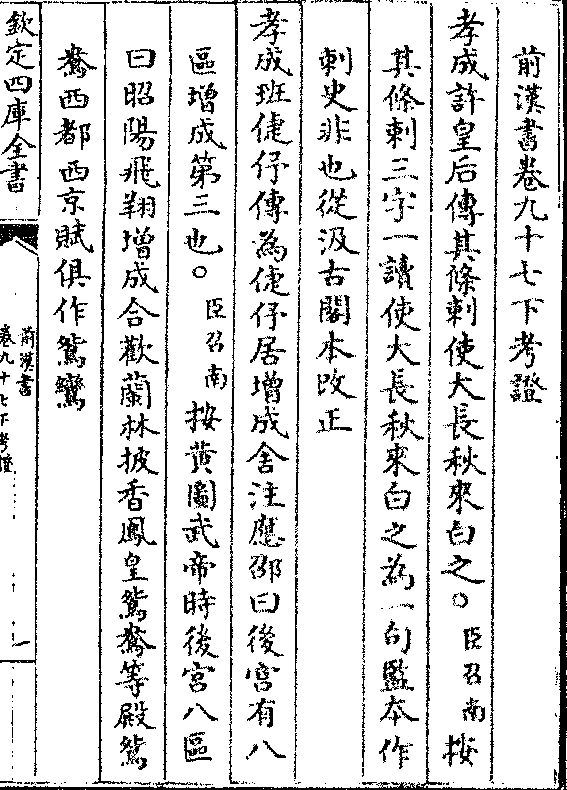 前漢書卷九十七下考證
孝成許皇后傳其條刺使大長秋來白之○臣召南按
其條刺三字一讀使大長秋來白之為一句監本作
刺史非也從汲古閣本改正
孝成班倢伃傳為倢伃居增成舍注應劭曰後宮有八
區增成第三也○臣召南按黃圖武帝時後宮八區
曰昭陽飛翔增成合歡蘭林披香鳳皇鴛鸯等殿鴛
鸯西都西京賦俱作鴛鸞
欽定四庫全書
前漢書
卷九十七下考證
一